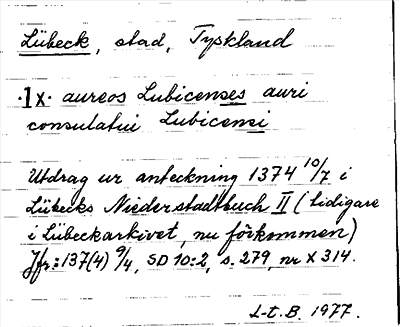 Lübeck, stad, Tyskland
·1x· aureos Lubicenses auri
consulatui Lubicensi
Utdrag ur anteckning 1374 10/7 i
Lübecks Niederstadtbuch II (tidigare
i Lübeckarkivet, nu förkommen)
Jfr: 137(4) 9/4, SD 10:2, s. 279, nr X 314.
L-t. B. 1977.